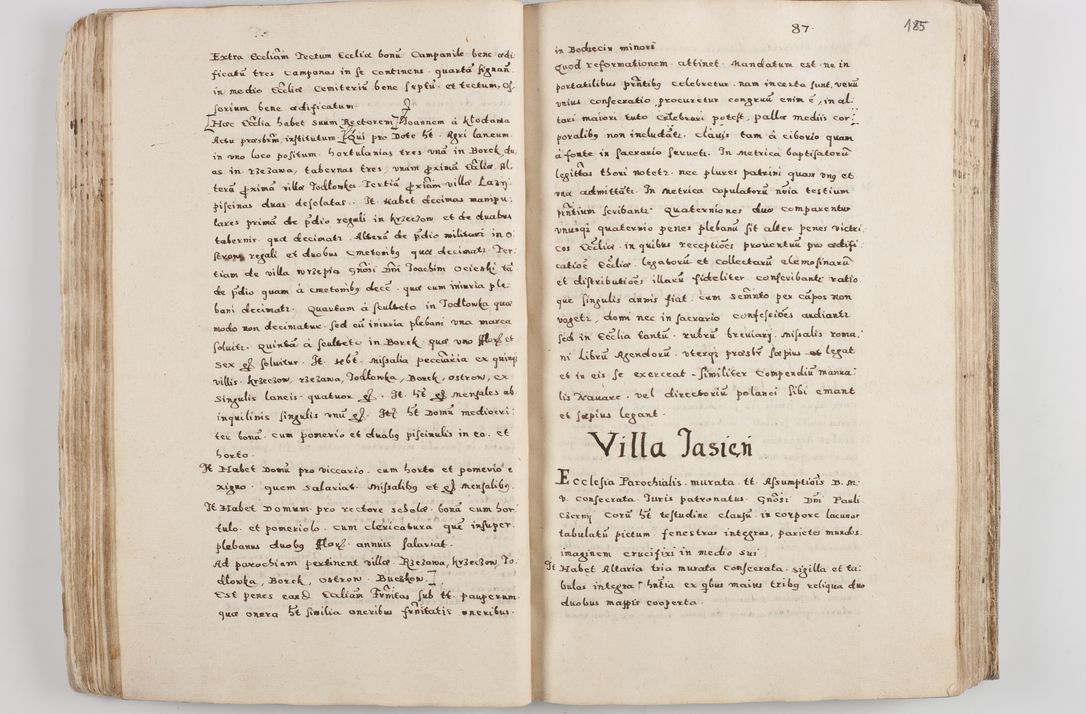 Extra Eccliam Tectum Ecclie bonu Campanile bene ædi
ficatu tres campanas in se continens quarta signan
in medio Ecclie Cemiteriu bene septu et tectum, Os
sorium bene ædificatum.
Hæc Ecclia habet suum Rectorem Joannem à Kłodania
Actu præsbrm, institutum Qui pro Dote ht Agri laneum
in vno loco positum. hortulanias tres vna in Borek du
as in rzezawa, tabernas tres, vnam proxima Ecclie Al
tera proxima villæ Jodłowka. Tertia villæ Lazy.
piscinas duas desolatas. It Habet decimas manipu
lares prima de pdio regali in krzeczow et de duabus
tabernis quæ decimat. Altera de pdio militari in O
strow regali et duobus Cmetonibus quæ decimat Ter
tiam de villa wrzepia Gnosi Dni Joachim Ocieski ta
de pdio quam à cmetonibus dece quæ cum iniuria ple
bani decimat. Quartam à sculteto in Jodlowka quæ
modo non decimatur sed cu iniuria plebani vna marca
soluit. Quinta à sculteto in Borek quæ vno flor et
sex gr soluitur. It missalia ex quinq
villis krzeczow, rzezawa, Jodłowka, Borek, ostrow, ex
singulis laneis quatuor gr. It ht gr mensales ab
inquilinis singulis vnu gr. ht Domu mediocri
ter bona cum pomerio et duabus piscinulis in eo et
horto.
It Habet Domu pro viccario cum horto et pomerio e
xiguo quem salariat missalibus et gr mensalibus.
It Habet Domum pro rectore scholæ bona cum hor
tulo et pomeriolo cum clericatura que insuper
plebanus duobus flor annuis salariat.
Ad parochiam pertinent villæ Rzezawa, krzeczow, Jo
dłowka, Borek, ostrow Buczkow.
Est penes eand Eccliam Frnitas sub tt pauperum
quæ onera ht similia oneribus frnitatis oneribus
87. 185
in Bochecin minori
quod reformationem attinet Mandatum est ne in
portatilibus celebretur nam incerta sunt, veru
vnius consecratio procuretur congruu enim e, in al
tari maiori tuto celebrari potest, pallæ mediis cor
poralibus non includat. clauis tam à ciborio quam
à fonte in sacrario seruet. In Metrica baptisatoru
legittas thori notet. nec plures patrini quam vnus et
vna admittat. In Metrica copulatoru noia testium
pntium scribant Quaterniones duo comparentur
vnusq quaternio penes plebanu sit alter penes victri
cos Ecclie in quibus receptioes prouentuu pro ædifi
catioe Ecclie legatoru et collectaru elemosinaru
et distributioes illaru fideliter conscribant ratio
que singulis annis fiat. cum semnto per capos non
vaget, domi nec in sacrario confessioes audiant
sed in Ecclia tantu. rubru breuiary missalis roma
ni Libru Agendoru vterq præsbr sæpius legat
et in eis se exerceat. Similiter Compendiu manua
lis Nauare vel directoriu polanci sibi emant
et sæpius legant.
Villa Jasień
Ecclesia Parochialis murata tt Assumptiois B. M.
v. consecrata Iuris patronatus Gnosi Dni Pauli
Czerny Coru ht testudine clausu in corpore lacunar
tabulatu pictum fenestras integras, parietes mundos.
imaginem crucifixi in medio sui
It Habet Altaria tria murata consecrata sigilla et ta
bulas integra hntia ex quibus maius tribus reliqua duo
duobus mappis cooperta.